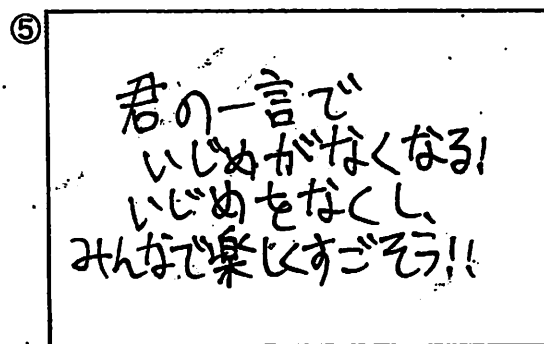 ⑤
君の一言で
いじめがなくなる!
いじめをなくし、
みんなで楽しくすごそう!!